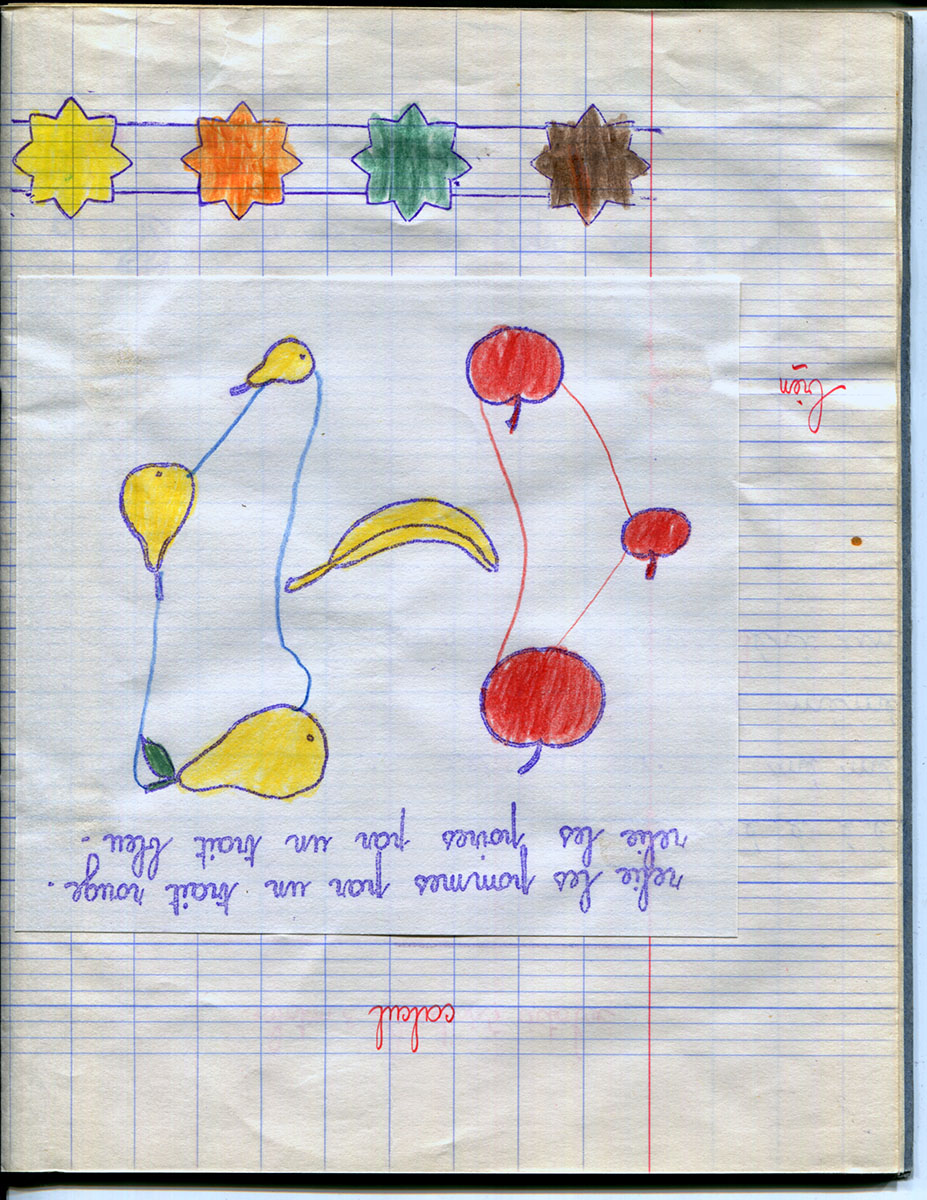 calcul
relie les pommes par un trait rouge.
relie les poires par un trait bleu.
bien